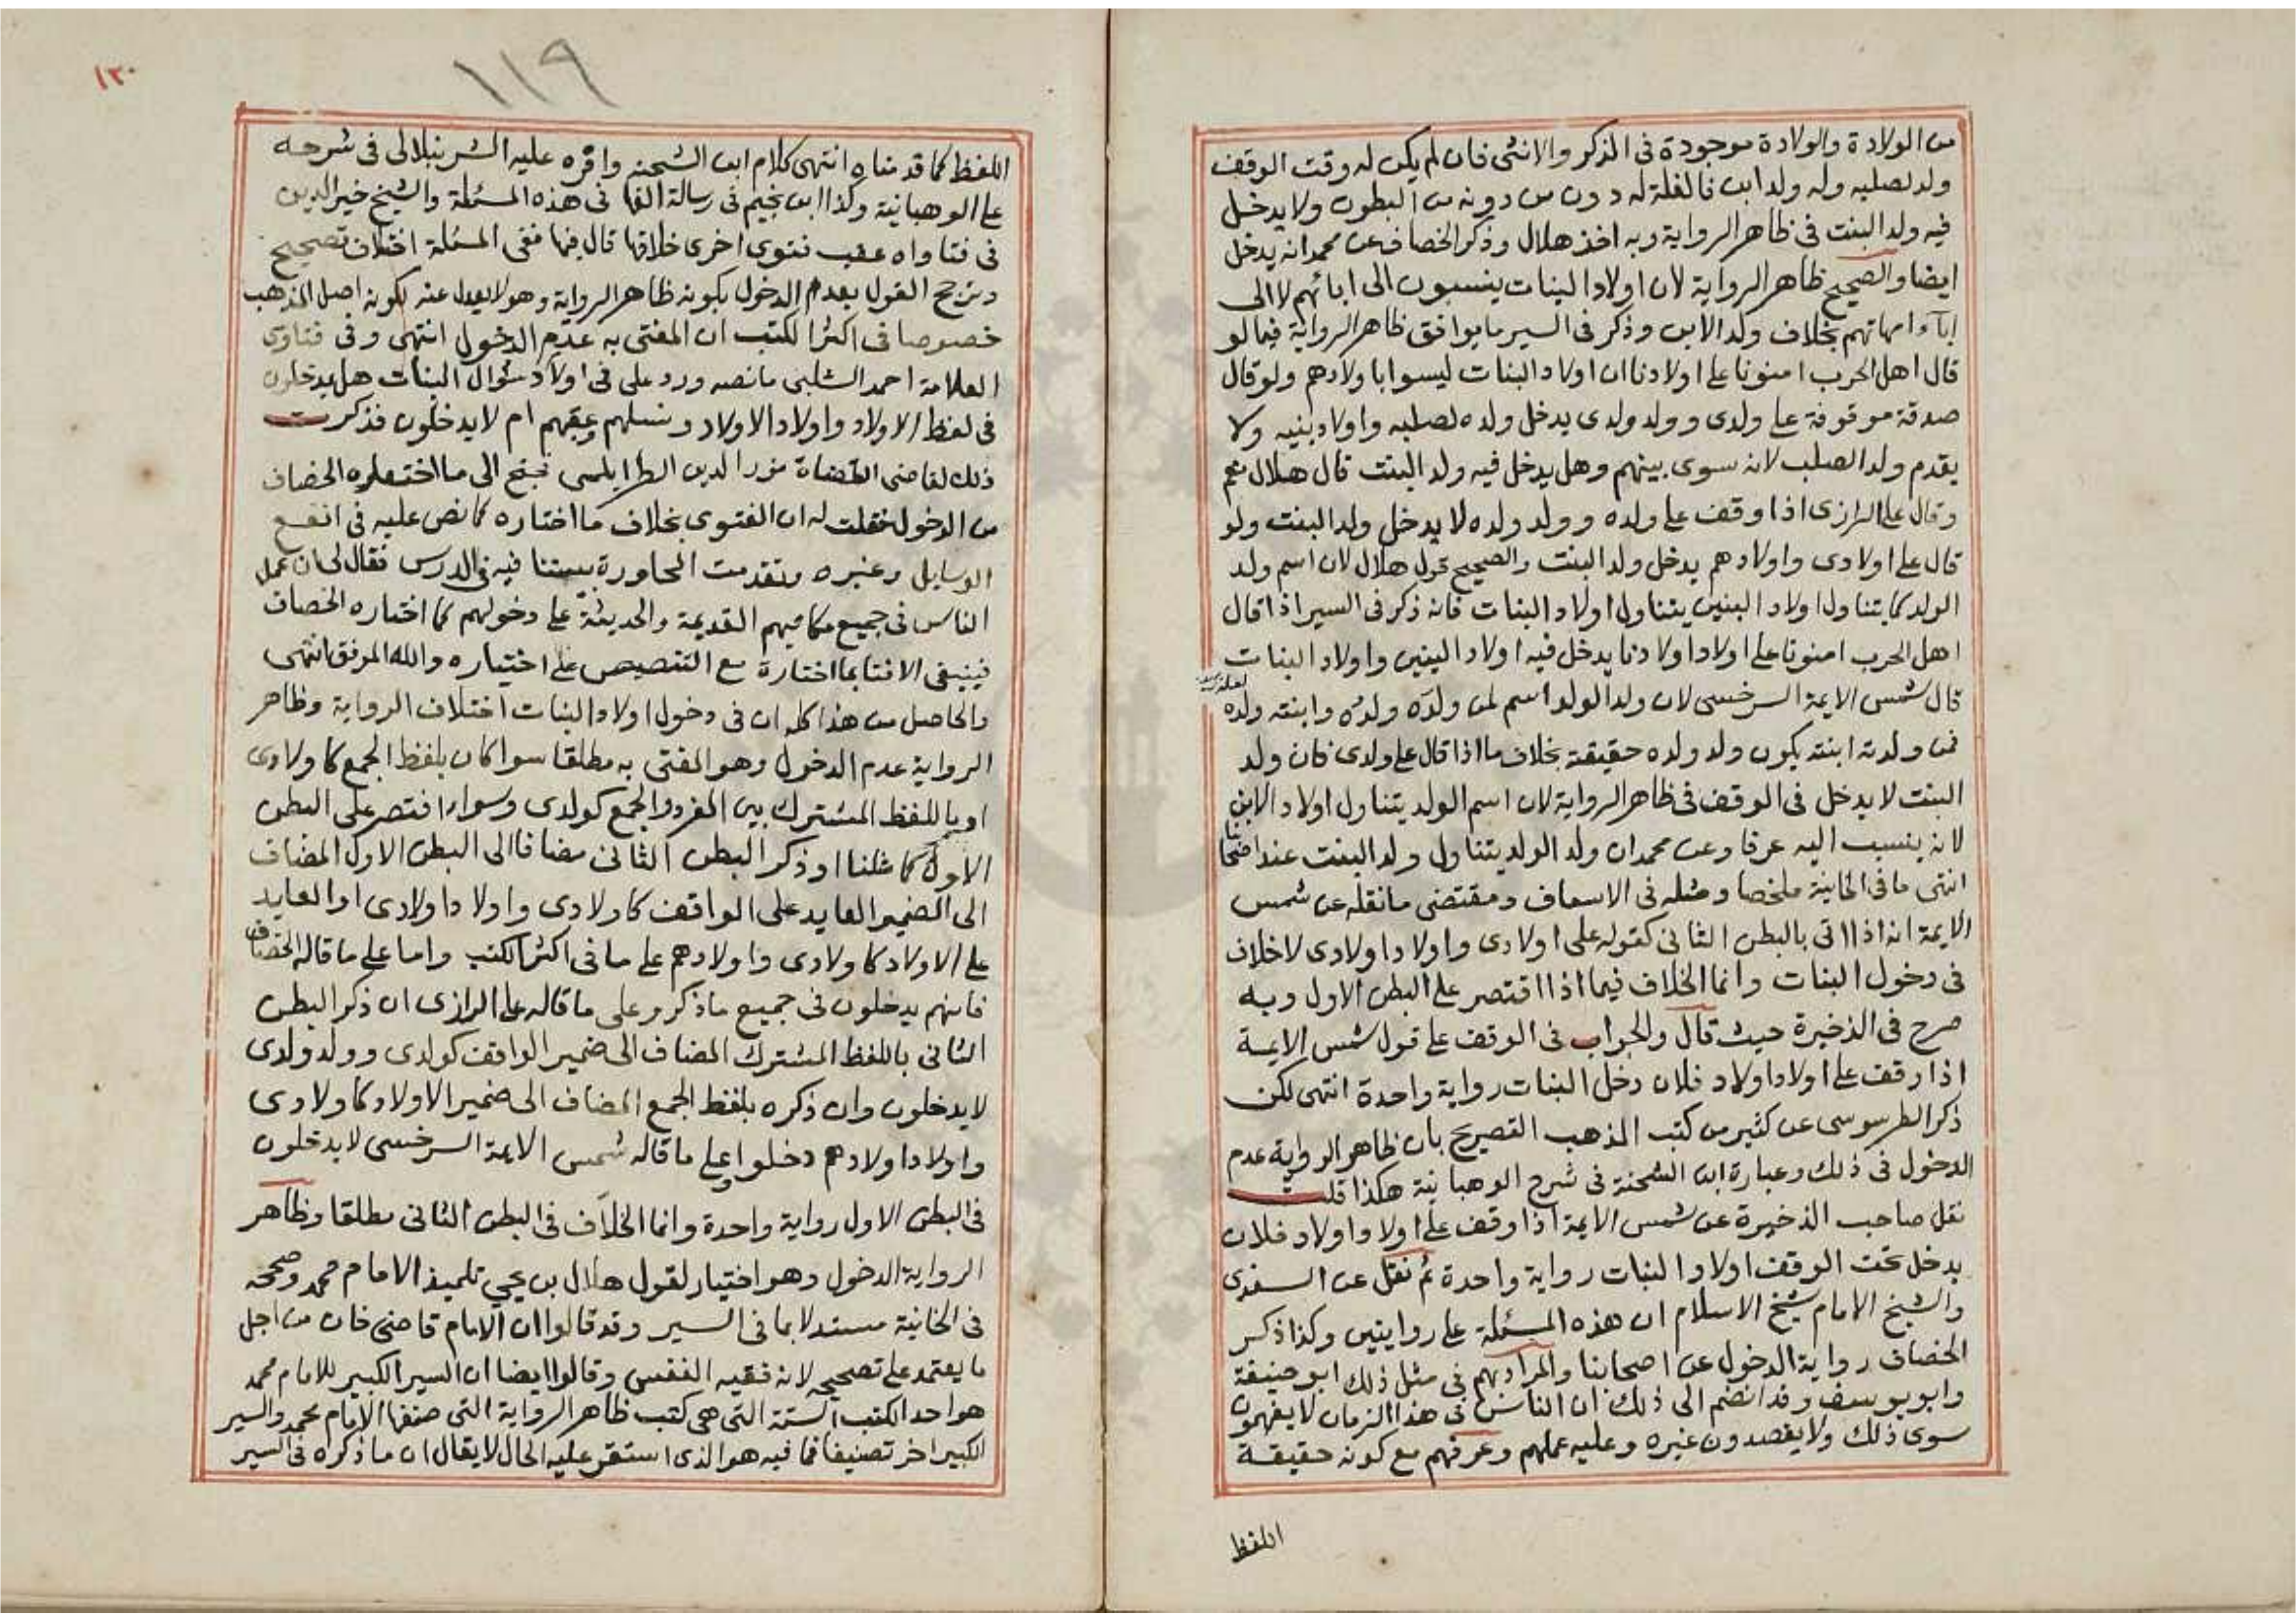 من الولادة والولادة موجودة فى الذكر والانثى فان لم يكن له وقت الوقف
ولد لصلبه وله ولد ابن فالغلة له دون من دونه من البطون ولا يدخل
فيه ولد البنت فى ظاهر الرواية وبه اخذ هلال وذكر الخصاف عن محمد انه يدخل
ايضا والصحيح ظاهر الرواية لان اولاد البنات ينسبون الى ابائهم لا الى
اباء امهاتهم بخلاف ولد الابن وذكر فى السير ما يوافق ظاهر الرواية فيما لو
قال اهل الحرب امنونا على اولادنا ان اولاد البنات ليسوا باولادهم ولو قال
صدقة موقوفة على ولدى وولد ولدى يدخل ولده لصلبه واولاد بنيه ولا
يقدم ولد الصلب لانه سوى بينهم وهل يدخل فيه ولد البنت قال هلال نعم
وقال على الرازى اذا وقف على ولده وولد ولده لا يدخل ولد البنت ولو
قال على اولادى واولادهم يدخل ولد البنت والصحيح قول هلال لان اسم ولد
الولد كما يتناول اولاد البنين يتناول اولاد البنات فانه ذكر فى السير اذا قال
اهل الحرب امنونا على اولاد اولادنا يدخل فيه اولاد البنين واولاد البنات
قال شمس الايمة السرخسى لان ولد الولد اسم لمن ولده ولده وابنته ولده
فمن ولدته ابنته يكون ولد ولده حقيقة بخلاف ما اذا قال على ولدى فان ولد
البنت لا يدخل فى الوقف فى ظاهر الرواية لان اسم الولد يتناول اولاد الابن
لانه ينسب اليه عرفا وعن محمد ان ولد الولد يتناول ولد البنت عند اصحابنا
انتهى ما فى الخانية ملخصا ومثله فى الاسعاف ومقتضى ما نقله عن شمس
الايمة انه اذا اتى بالبطن الثانى كقوله على اولادى واولاد اولادى لا خلاف
فى دخول البنات وانما الخلاف فيما اذا اقتصر على البطن الاول وبه
صرح فى الذخيرة حيث قال والجواب فى الوقف على قول شمس الايمة
اذا وقف على اولاد اولاد فلان دخل البنات رواية واحدة انتهى لكن
ذكر الطرسوسى عن كثير من كتب المذهب التصريح بان ظاهر الرواية عدم
الدخول فى ذلك وعبارة ابن الشحنة فى شرح الوهبانية هكذا قلت
نقل صاحب الذخيرة عن شمس الايمة اذا وقف على اولاد واولاد فلان
يدخل تحت الوقف اولاد البنات رواية واحدة ثم نقل عن السغدى
والشيخ الامام شيخ الاسلام ان هذه المسئلة على روايتين وكذا ذكر
الخصاف رواية الدخول عن اصحابنا والمراد بهم فى مثل ذلك ابو حنيفة
وابو يوسف وقد انضم الى ذلك ان الناس فى هذا الزمان لا يفهمون
سوى ذلك ولا يقصدون غيره وعليه عملهم وعرفهم مع كونه حقيقة
اللفظ
١١٩
١٢٠
اللفظ كما قدمناه انتهى كلام ابن الشحنه واقره عليه الشرنبلالى فى شرحه
على الوهبانية وكذا ابن نجيم فى رسالة الفها فى هذه المسئلة والشيخ خير الدين
فى فتاواه عقب فتوى اخرى خلافها قال فيها ففى المسئلة اختلاف تصحيح
وترجح القول بعدم الدخول بكونه ظاهر الرواية وهو لا يعدل عنه لكونه اصل المذهب
خصوصا فى اكثر الكتب ان المفتى به عدم الدخول انتهى وفى فتاوى
العلامة احمد الشلبى ما نصه ورد على فى اولاد سؤال البنات هل يدخلون
فى لفظ الاولاد واولاد الاولاد ونسلهم وعقبهم ام لا يدخلون فذكرت
ذلك لقاضى القضاة نور الدين الطرابلسى فجنح الى ما اختاره الخصاف
من الدخول فقلت له ان الفتوى بخلاف ما اختاره كما نص عليه فى انفع
الوسايل وغيره وتقدمت المحاورة بيننا فيه فى الدرس فقال لى ان عمل
الناس فى جميع مكاتيبهم القديمة والحديثة على دخولهم كما اختاره الخصاف
فينبغى الافتا بما اختارة مع التنصيص على اختياره والله الموفق انتهى
والحاصل من هذا كله ان فى دخول اولاد البنات اختلاف الرواية وظاهر
الرواية عدم الدخول وهو المفتى به مطلقا سوا كان بلفظ الجمع كاولادى
او باللفظ المشترك بين المفرد والجمع كولدى وسواء اقتصر على البطن
الاول كما مثلنا او ذكر البطن الثانى مضافا الى البطن الاول المضاف
الى الضمير العايد على الواقف كاولادى واولاد اولادى او العايد
على الاولاد كاولادى واولادهم على ما فى اكثر الكتب واما على ما قاله الخصاف
فانهم يدخلون فى جميع ما ذكر وعلى ما قاله على الرازى ان ذكر البطن
الثانى باللفظ المشترك المضاف الى ضمير الواقف كولدى وولد ولدى
لا يدخلون وان ذكره بلفظ الجمع المضاف الى ضمير الاولاد كاولادى
واولاد اولادهم دخلوا وعلى ما قاله شمس الايمة السرخسى لا يدخلون
فى البطن الاول رواية واحدة وانما الخلاف فى البطن الثانى مطلقا وظاهر
الرواية الدخول وهو اختيار لقول هلال بن يحيي تلميذ الامام محمد وصححه
فى الخانية مستدلا بما فى السير وقد قالوا ان الامام قاضى خان من اجل
ما يعتمد على تصحيحه لانه فقيه النفس وقالوا ايضا ان السير الكبير للامام محمد
هو احد الكتب الستة التى هى كتب ظاهر الرواية التى صنفها الامام محمد والسير
الكبير اخر تصنيفا فما فيه هو الذى استقر عليه الحال لا يقال ان ما ذكره فى السير